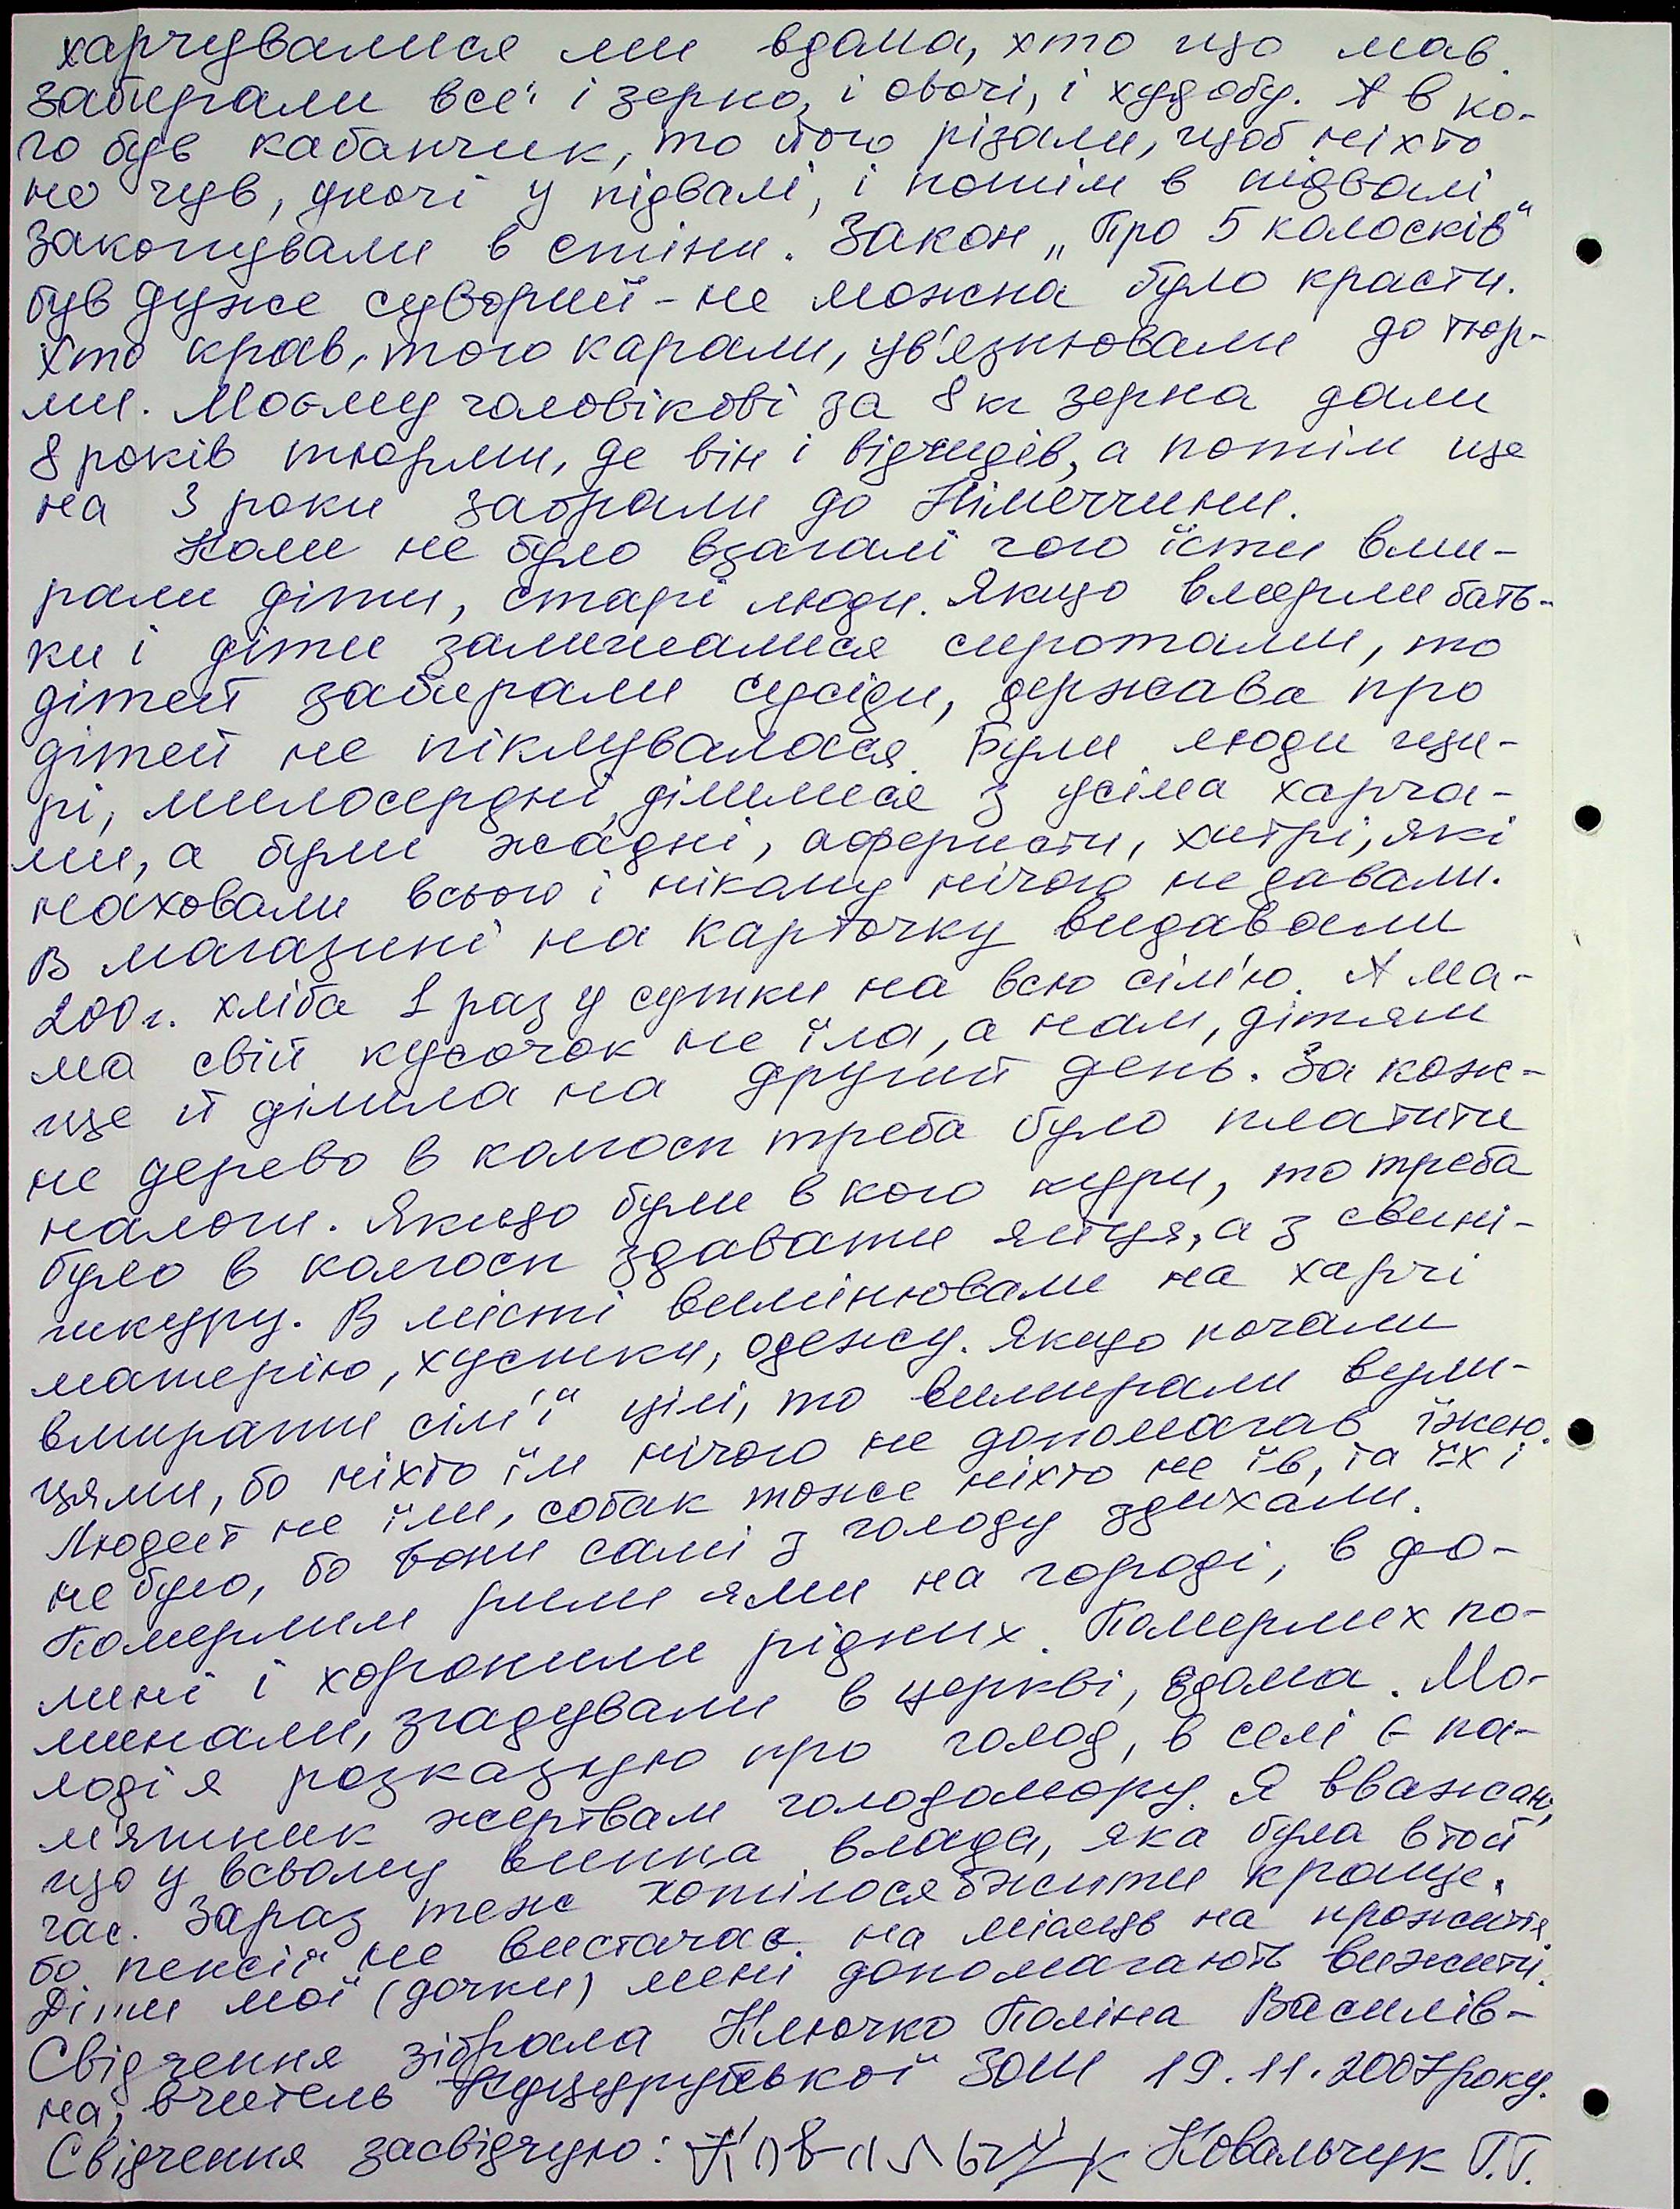 харчувалися ми вдома, хто що мав.
Забирали все: і зерно, і овочі, і худобу. А в ко-
го був кабанчик, то його різали, щоб ніхто
не чув, уночі у підвалі, і потім в підвалі
закопували в стіни. Закон „Про 5 колосків“
був дуже суворий - не можна було красти.
Хто крав, того карали, ув'язнювали до тюр-
ми. Моєму чоловікові за 8 кг зерна дали
8 років тюрми, де він і відсидів, а потім ще
на 3 роки забрали до Німеччини.
Коли не було взагалі чого їсти вми-
рали діти, старі люди. Якщо вмерли бать-
ки і діти залишалися сиротами, то
дітей забирали сусіди, держава про
дітей не піклувалася. Були люди щи-
рі, милосердні, ділилися з усіма харча-
ми, а були жадні, аферисти, хитрі, які
наховали всього і нікому нічого не давали.
В магазині на карточку видавали
200 г. хліба 1 раз у сутки на всю сім'ю. А ма-
ма свій кусочок не їла, а нам, дітям
ще й ділила на другий день. За кож-
не дерево в колгосп треба було платити
налоги. Якщо були в кого кури, то треба
було в колгосп здавати яйця, а з свині-
шкуру. В місті вимінювали на харчі
матерію, хустки, одежу. Якщо почали
вмирати сім'ї цілі, то вимирали вули-
цями, бо ніхто їм нічого не допомагав їжею.
Людей не їли, собак тоже ніхто не їв, та їх і
не було, бо вони самі з голоду здихали.
Померлим рили ями на городі, в до-
лині і хоронили рідних. Померлих по-
минали, згадували в церкві, вдома. Мо-
лоді я розказую про голод, в селі є па-
м'ятник жертвам голодомору. Я вважаю,
що у всьому винна влада, яка була в той
час. Зараз теж хотілося б жити краще,
бо пенсії не вистачає на місяць на прожиття.
Діти мої (дочки) мені допомагають вижити.
Свідчення зібрала Ключко Поліна Василів-
на, вчитель Куцурубської ЗОШ 19.11.2007 року.
Свідчення засвідчую: Ковальчук Ковальчук Г.Г.